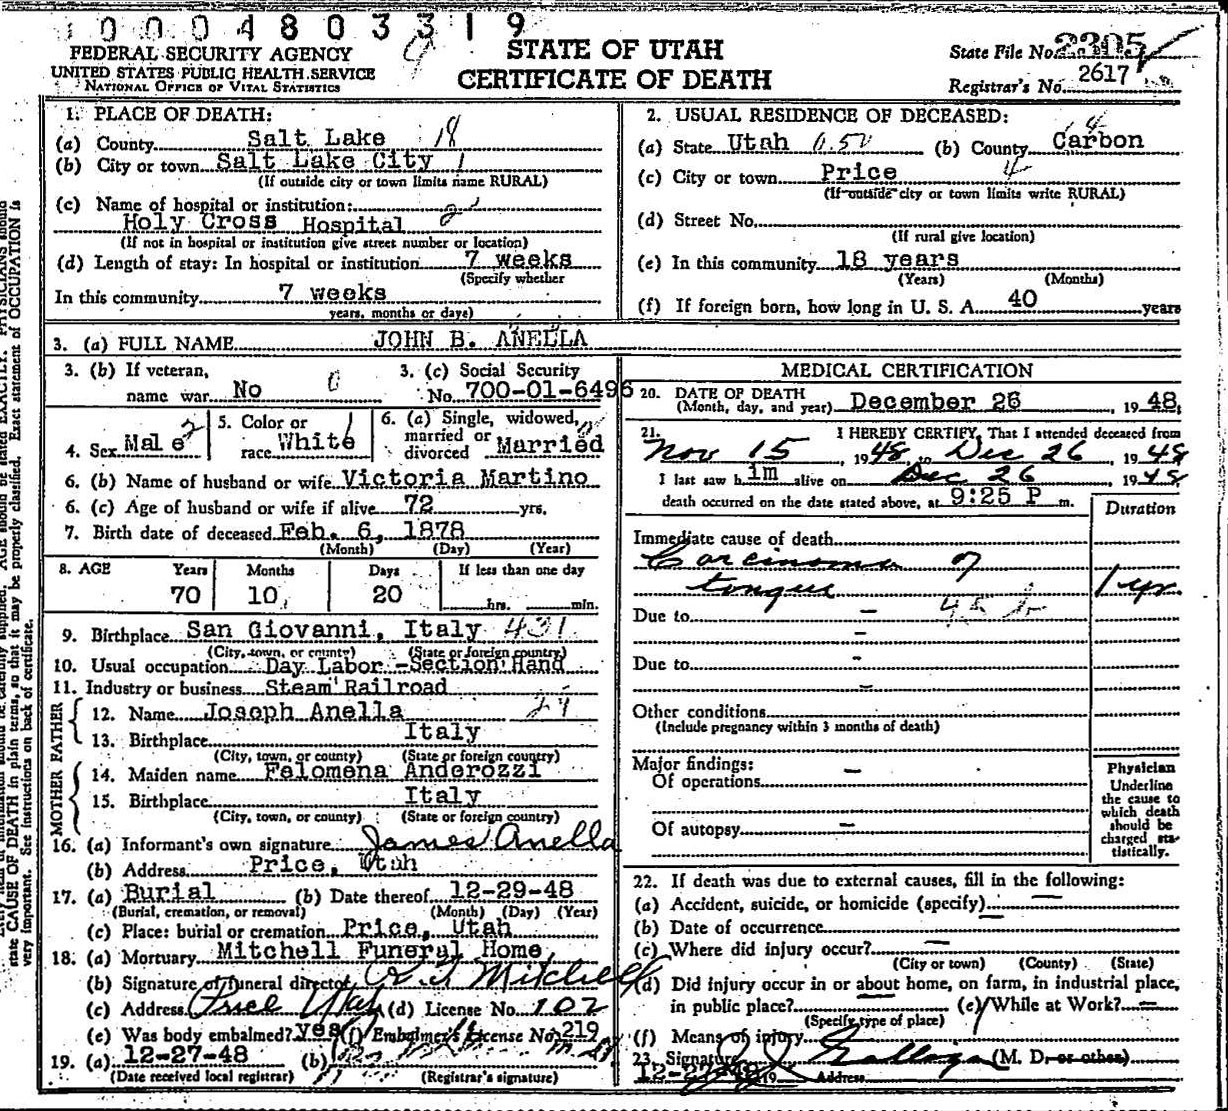 10004803319
FEDERAL SECURITY AGENCY
UNITED STATES PUBLIC HEALTH SERVICE
NATIONAL OFFICE OF VITAL STATISTICS
STATE OF UTAH
CERTIFICATE OF DEATH
State File No. 2305
Registrar's No. 2617
1. PLACE OF DEATH:
(a) County Salt Lake 18
(b) City or town Salt Lake City 1
(If outside city or town limits name RURAL)
(c) Name of hospital or institution:
Holy Cross Hospital
(If not in hospital or institution give street number or location)
(d) Length of stay: In hospital or institution 7 weeks
(Specify whether
In this community 7 weeks
years, months or days)
2. USUAL RESIDENCE OF DECEASED:
(a) State Utah (b) County Carbon
(c) City or town Price 4
(If outside city or town limits write RURAL)
(d) Street No.
(If rural give location)
(e) In this community 18 years
(Years) (Months)
(f) If foreign born, how long in U. S. A. 40 years
3. (a) FULL NAME JOHN B. ANELLA
3. (b) If veteran,
name war No 0
3. (c) Social Security
No. 700-01-6496
4. Sex Male 2
5. Color or
race White 1
6. (a) Single, widowed,
married or
divorced Married
6. (b) Name of husband or wife Victoria Martino
6. (c) Age of husband or wife if alive 72 yrs.
7. Birth date of deceased Feb. 6, 1878
(Month) (Day) (Year)
8. AGE Years Months Days If less than one day
70 10 20 hrs. min.
9. Birthplace San Giovanni, Italy 431
(City, town, or county) (State or foreign country)
10. Usual occupation Day Labor -Section Hand
11. Industry or business Steam Railroad
FATHER
12. Name Joseph Anella
13. Birthplace Italy
(City, town, or county) (State or foreign country)
MOTHER
14. Maiden name Felomena Anderozzi
15. Birthplace Italy
(City, town, or county) (State or foreign country)
16. (a) Informant's own signature James Anella
(b) Address Price, Utah
17. (a) Burial (b) Date thereof 12-29-48
(Burial, cremation, or removal) (Month) (Day) (Year)
(c) Place: burial or cremation Price, Utah
18. (a) Mortuary Mitchell Funeral Home
(b) Signature of funeral director Mitchell
(c) Address Price Utah (d) License No. 102
(e) Was body embalmed? yes (f) Embalmer's License No. 219
19. (a) 12-27-48 (b)
(Date received local registrar) (Registrar's signature)
MEDICAL CERTIFICATION
20. DATE OF DEATH
(Month, day, and year) December 26, 1948
21. I HEREBY CERTIFY, That I attended deceased from
Nov 15, 1948 to Dec 26, 1948
I last saw him alive on Dec 26, 1948
death occurred on the date stated above, at 9:25 P m.
Duration
Immediate cause of death
Carcinoma of
tongue 1 yr.
Due to
Due to
Other conditions
(Include pregnancy within 3 months of death)
Major findings:
Of operations
Of autopsy
Physician
Underline
the cause to
which death
should be
charged sta-
tistically.
22. If death was due to external causes, fill in the following:
(a) Accident, suicide, or homicide (specify)
(b) Date of occurrence
(c) Where did injury occur?
(City or town) (County) (State)
(d) Did injury occur in or about home, on farm, in industrial place,
in public place? (e) While at Work?
(Specify type of place)
(f) Means of injury
23. Signature (M. D. or other)
12-27-48 19 Address
state CAUSE OF DEATH in plain terms, so that it may be properly classified. Exact statement of OCCUPATION is
very important. See instructions on back of certificate.